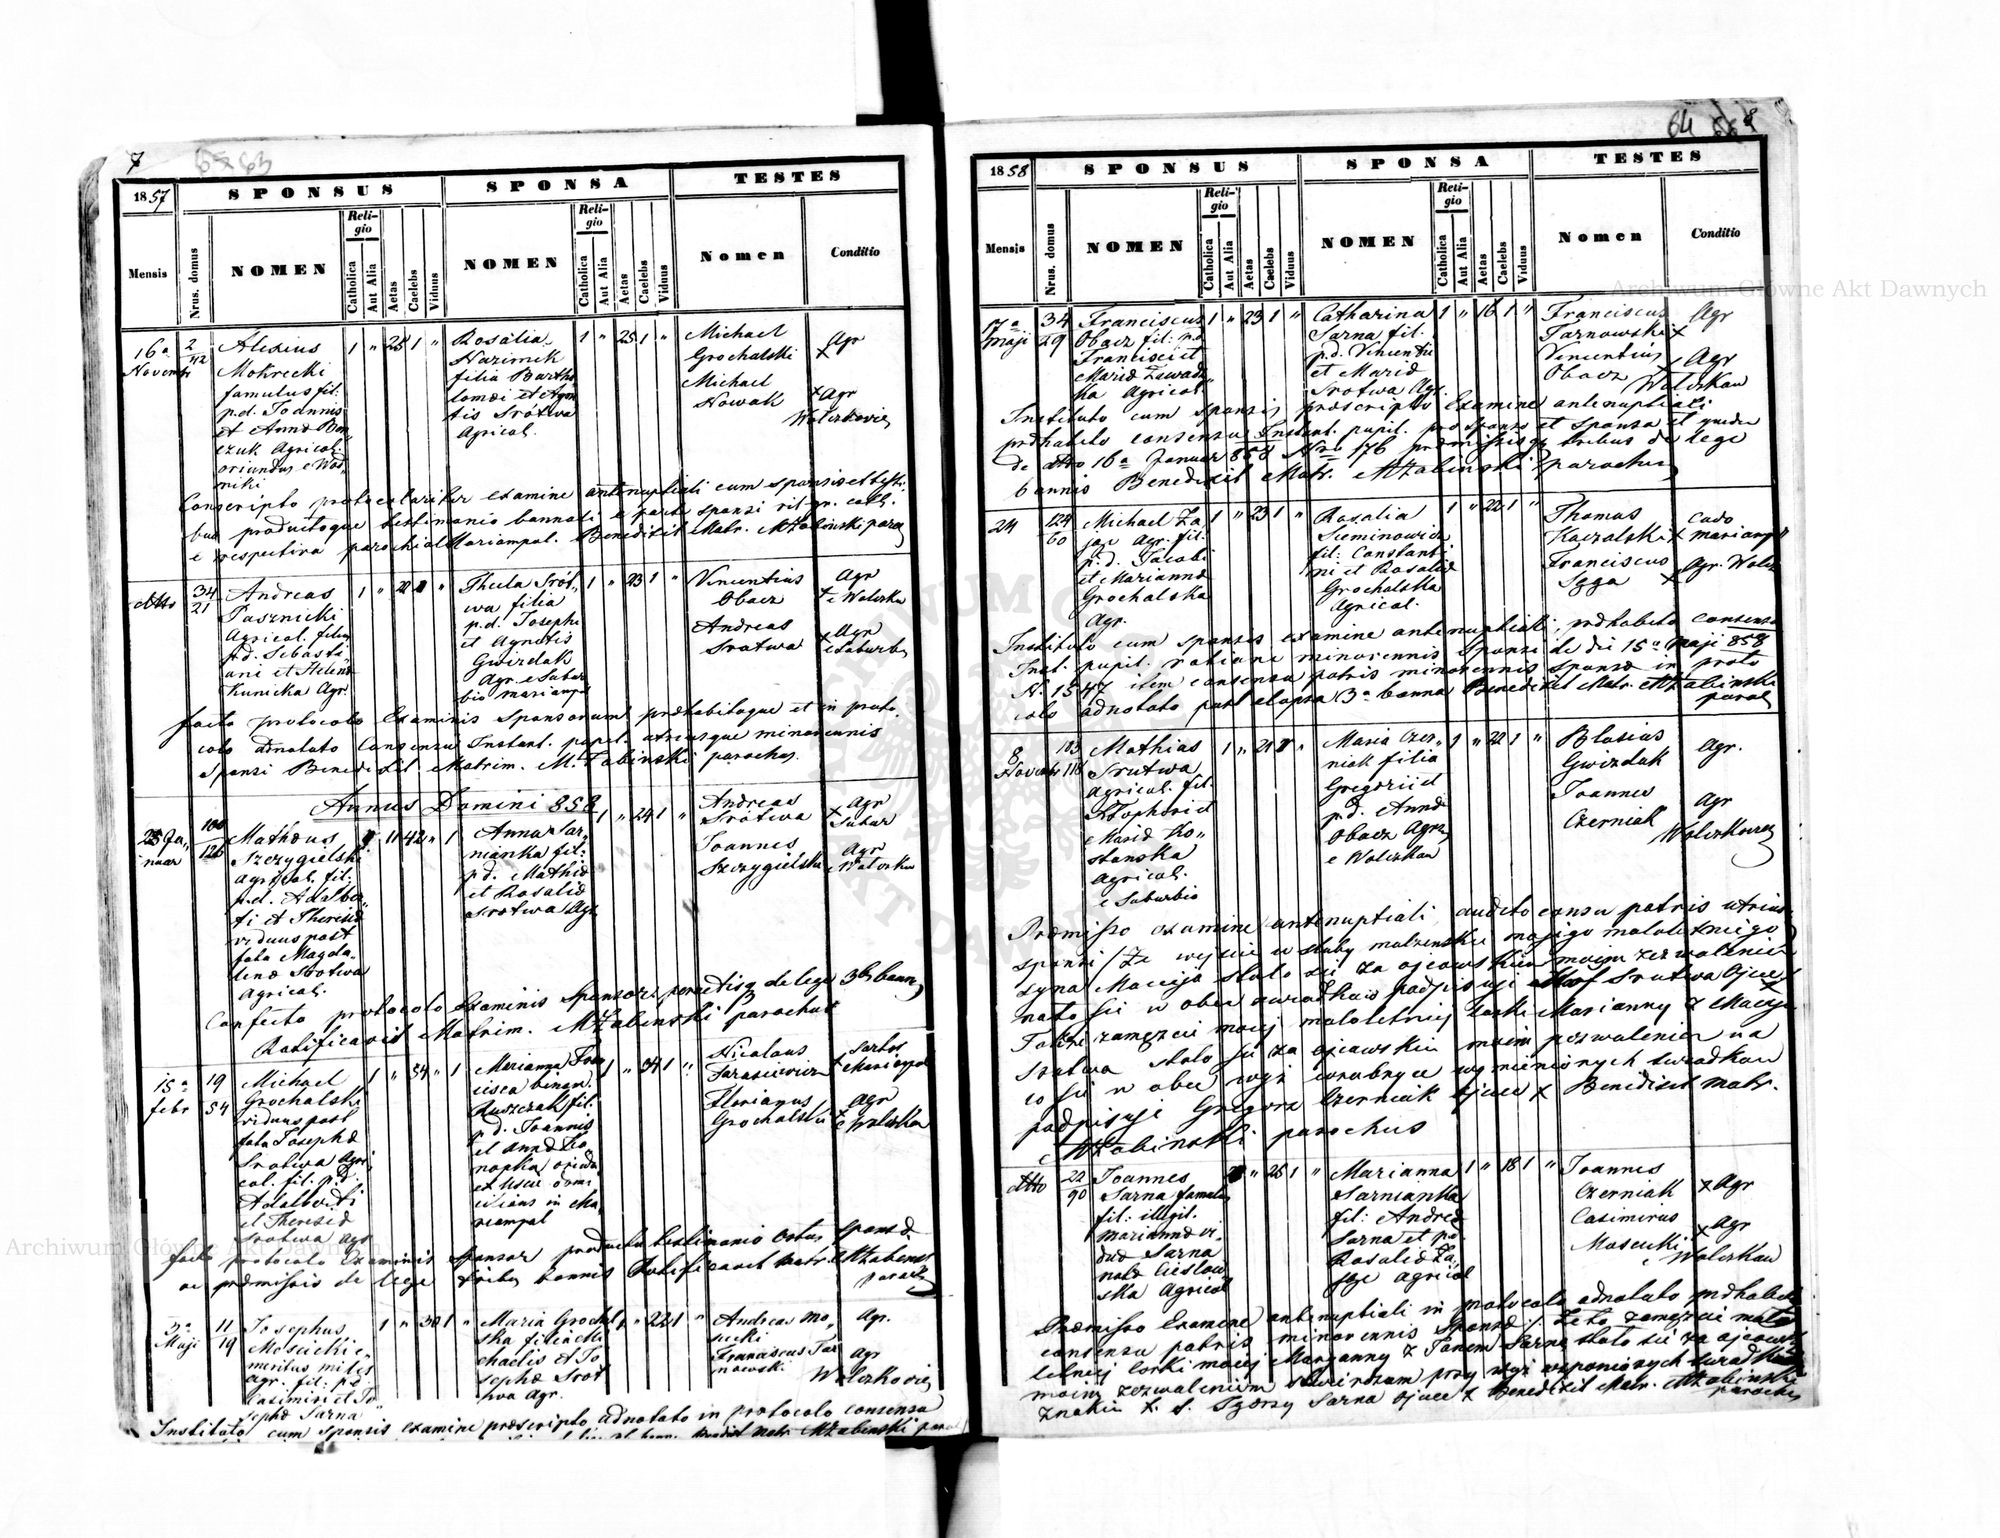 7
63
1857
SPONSUS
SPONSA
TESTES
Mensis
Nrus. domus
NOMEN
Religio
Catholica
Aut Alia
Aetas
Caelebs
Viduus
NOMEN
Religio
Catholica
Aut Alia
Aetas
Caelebs
Viduus
Nomen
Conditio
16a
Novembr
2
112
Alexius
Mokrecki
famulus fil:
p.d. Joannis
et Annæ
Agricol.
oriundus e
1 " 25 1 "
Rosalia
Nazimek
filia Bartho
lomæi et Agne
tis Srótwa
Agricol.
1 " 25 1 "
Michael
Grochalski
x
Agr
Michael
Nowak
x Agr
Conscripto protocolariter examine antenuptiali cum sponsis et testi
bus productoque testimonio bannali e parte sponsi rit. gr. cath.
e respectiva parochia Mariampol. Benedixit Matr. MŻabinski paro
dtto
34
21
Andreas
Pasznicki
Agricol. filius
p.d. Sebasti
ani et Helenæ
Kunicka Agr.
1 " 22 1 "
Thecla Srót
wa filia
p.d. Josephi
et Agnetis
Gwizdak
Agr. e Subur
bio mariamp
1 " 23 1 "
Vincentius
Obacz
Agr
x e Wolczka
Andreas
Srotwa
x Agr
e Suburb
facto protocolo Examinis Sponsorum præhabitoque et in proto
colo adnotato Consensu Instant. pupil. utriusque minorennis
Sponsi Benedixit Matrim. M. Żabinski parochus.
Annus Domini 858
25 Ja
nuar
100
126
Mathæus
Szczygielski
Agricol. fil:
p.d. Adalber
ti et Theresiæ
viduus post
fata Magda
lenæ Srotwa
Agricol.
42 " 1
Anna Sar
nianka fil:
p.d. Mathiæ
et Rosaliæ
Srotwa Agr
1 " 24 1 "
Andreas
Srótwa
x Agr
Subur
Joannes
Szczygielski
Agr
e Wolczkow
Confecto protocolo Examinis Sponsor. de lege 3bs bann
Ratificavit Matrim. MŻabinski parochus
15a
febr
19
54
Michael
Grochalski
viduus post
fata Josephæ
Srotwa Agri
col. fil. p.d.
Adalberti
et Theresiæ
Srotwa agr
1 " 54 " 1
Marianna Fran
cisca binom.
Ruszczak fil.
p.d. Joannis
et Annæ Ko
nopka
domi
cilians in Ma
riampol
1 " 34 1 "
Nicolaus
Tarasiewicz
Sartor
x Mariampol
Florianus
Grochalski
Agr
x e Wolczkow
facto protocolo Examinis sponsor producto testimonio Ortus sponsæ
ac præmissis de lege tribus bannis Ratificavit matr. MŻabinski
paroch
3a
Maji
11
19
Josephus
Moscicki e
meritus miles
agr. fil: p.d.
Casimiri et Jo
sephæ Sarna
1 " 30 1 "
Maria Grochal
ska filia Mi
chaelis et Jo
sephæ Srot
wa Agr.
1 " 22 1 "
Andreas Mo
scicki
Agr.
Franciscus Tar
nowski
agr
Wolczkoviec
Instituto cum Sponsis examine præscripto adnotato in protocolo consensu
64
8
1858
SPONSUS
SPONSA
TESTES
Mensis
Nrus. domus
NOMEN
Religio
Catholica
Aut Alia
Aetas
Caelebs
Viduus
NOMEN
Religio
Catholica
Aut Alia
Aetas
Caelebs
Viduus
Nomen
Conditio
17a
maji
34
29
Franciscus
Obacz fil: p.d.
Francisci et
Mariæ Zawadz
ka Agricol.
1 " 23 1 "
Catharina
Sarna fil.
p.d. Vincentii
et Mariæ
Srotwa Agr.
1 " 16 1 "
Franciscus
Tarnowski x
Agr
Vincentius
Obacz
x Agr
Wolczkow
Instituto cum sponsis præscripto Examine antenuptiali
præhabito consensu Instant. pupil. pro Sponso et Sponsa et quidem
de dtto 16a Januar 858 Nro 176 præmissisq tribus de lege
bannis Benedixit Matr. MŻabinski parochus
24
124
60
Michael Za
jąc Agr. fil:
p.d. Jacobi
et Mariannæ
Grochalska
Agr.
1 " 23 1 "
Rosalia
Sieminowicz
fil: Constanti
ni et Rosaliæ
Grochalska
Agricol.
1 " 22 1 "
Thomas
Koczalski x
mariamp
Franciscus
x Agr. Wolcz
Instituto cum sponsis examine antenuptiali, præhabito consensu
Inst. pupil. ratione minorennis Sponsi de di 15a Maji 858
N. 1547 item consensu patris minorennis Sponsæ in proto
colo adnotato post elapsa 3a banna Benedixit Matr. MŻabinski
paroch
8
Novembr
103
118
Mathias
Srotwa
Agricol. fil.
et
Mariæ Ko
stanska
Agricol.
e Suburbio
1 " 21 1 "
Maria Czer
niak filia
Gregorii et
p.d. Annæ
Obacz Agr
e Wolczkow
1 " 22 1 "
Blasius
Gwizdak
Agr.
Joannes
Czerniak
Agr
Wolczkowcez
Præmisso examine antenuptiali, audito consensu patris utrius
sponsi /: Że wejście w śluby małżeńskie mojego małoletniego
syna Macieja stało się za ojcowskim moim zezwoleniem
w obec świadków podpisuje Srotwa Ojciec x
Także zamęzcie mojej małoletniej Córki Marianny z Maciejem
Srotwa stało się za ojcowskim moim pozwoleniem na
co się w obec wyż wymienionych świadków
podpisuje Gregorz Czerniak Ojciec x Benedixit Matr.
MŻabinski parochus
dtto
22
90
Joannes
Sarna famulus
fil: illegit.
mariannæ vi
duæ Sarna
natæ Cieslow
ska Agricol
" 25 1 "
Marianna
Sarnianka
fil: Andreæ
Sarna et p.d.
Rosaliæ Za
jąc agricol
1 " 18 1 "
Joannes
Czerniak
x Agr
Casimirus
Moscicki
x Agr
e Wolczkow
Præmisso Examine antenuptiali in protocolo adnotato præhabito
consensu patris minorennis Sponsæ /: Że to zamęzcie mało
letniej Corki mojej Maryanny z Janem Sarna stało się za ojcowskim
moim zezwoleniem stwierdzam przy wyż wspomnionych świadkach
znakiem x. Sarna ojciec x Benedixit Matr. MŻabinski
parochus
Archiwum Główne Akt Dawnych
Archiwum Główne Akt Dawnych
ARCHIWUM GŁÓWNE AKT DAWNYCH